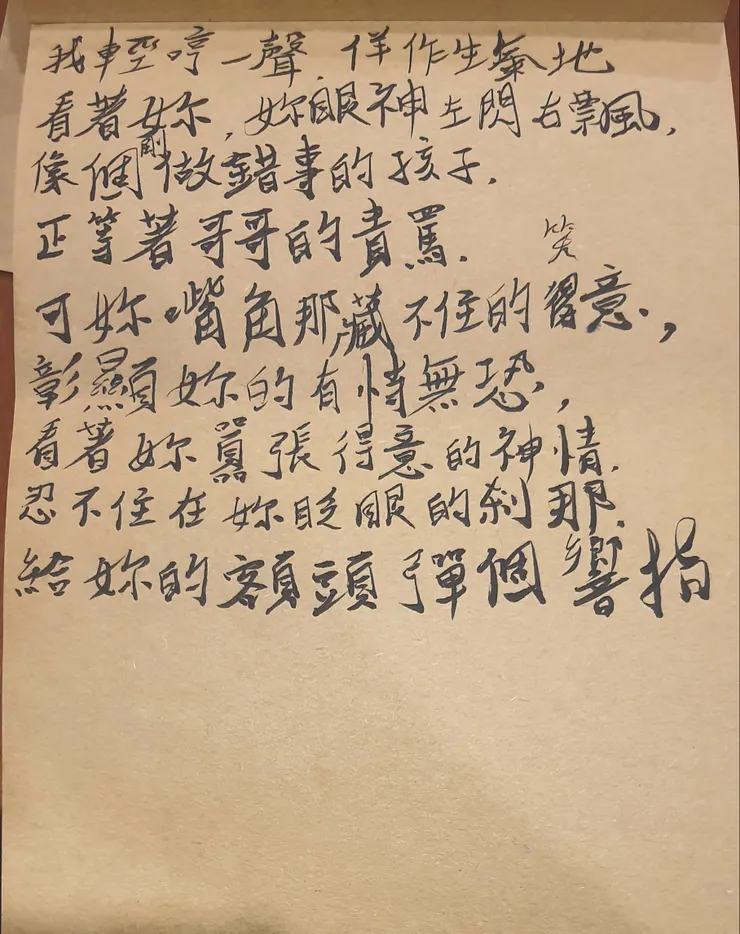 我輕哼一聲,佯作生氣地
看著妳,妳眼神左閃右飄,
像個剛做錯事的孩子,
正等著哥哥的責罵.
可妳嘴角那藏不住的笑意,
彰顯妳的有恃無恐,
看著妳囂張得意的神情,
忍不住在妳眨眼的剎那,
給妳的額頭彈個響指